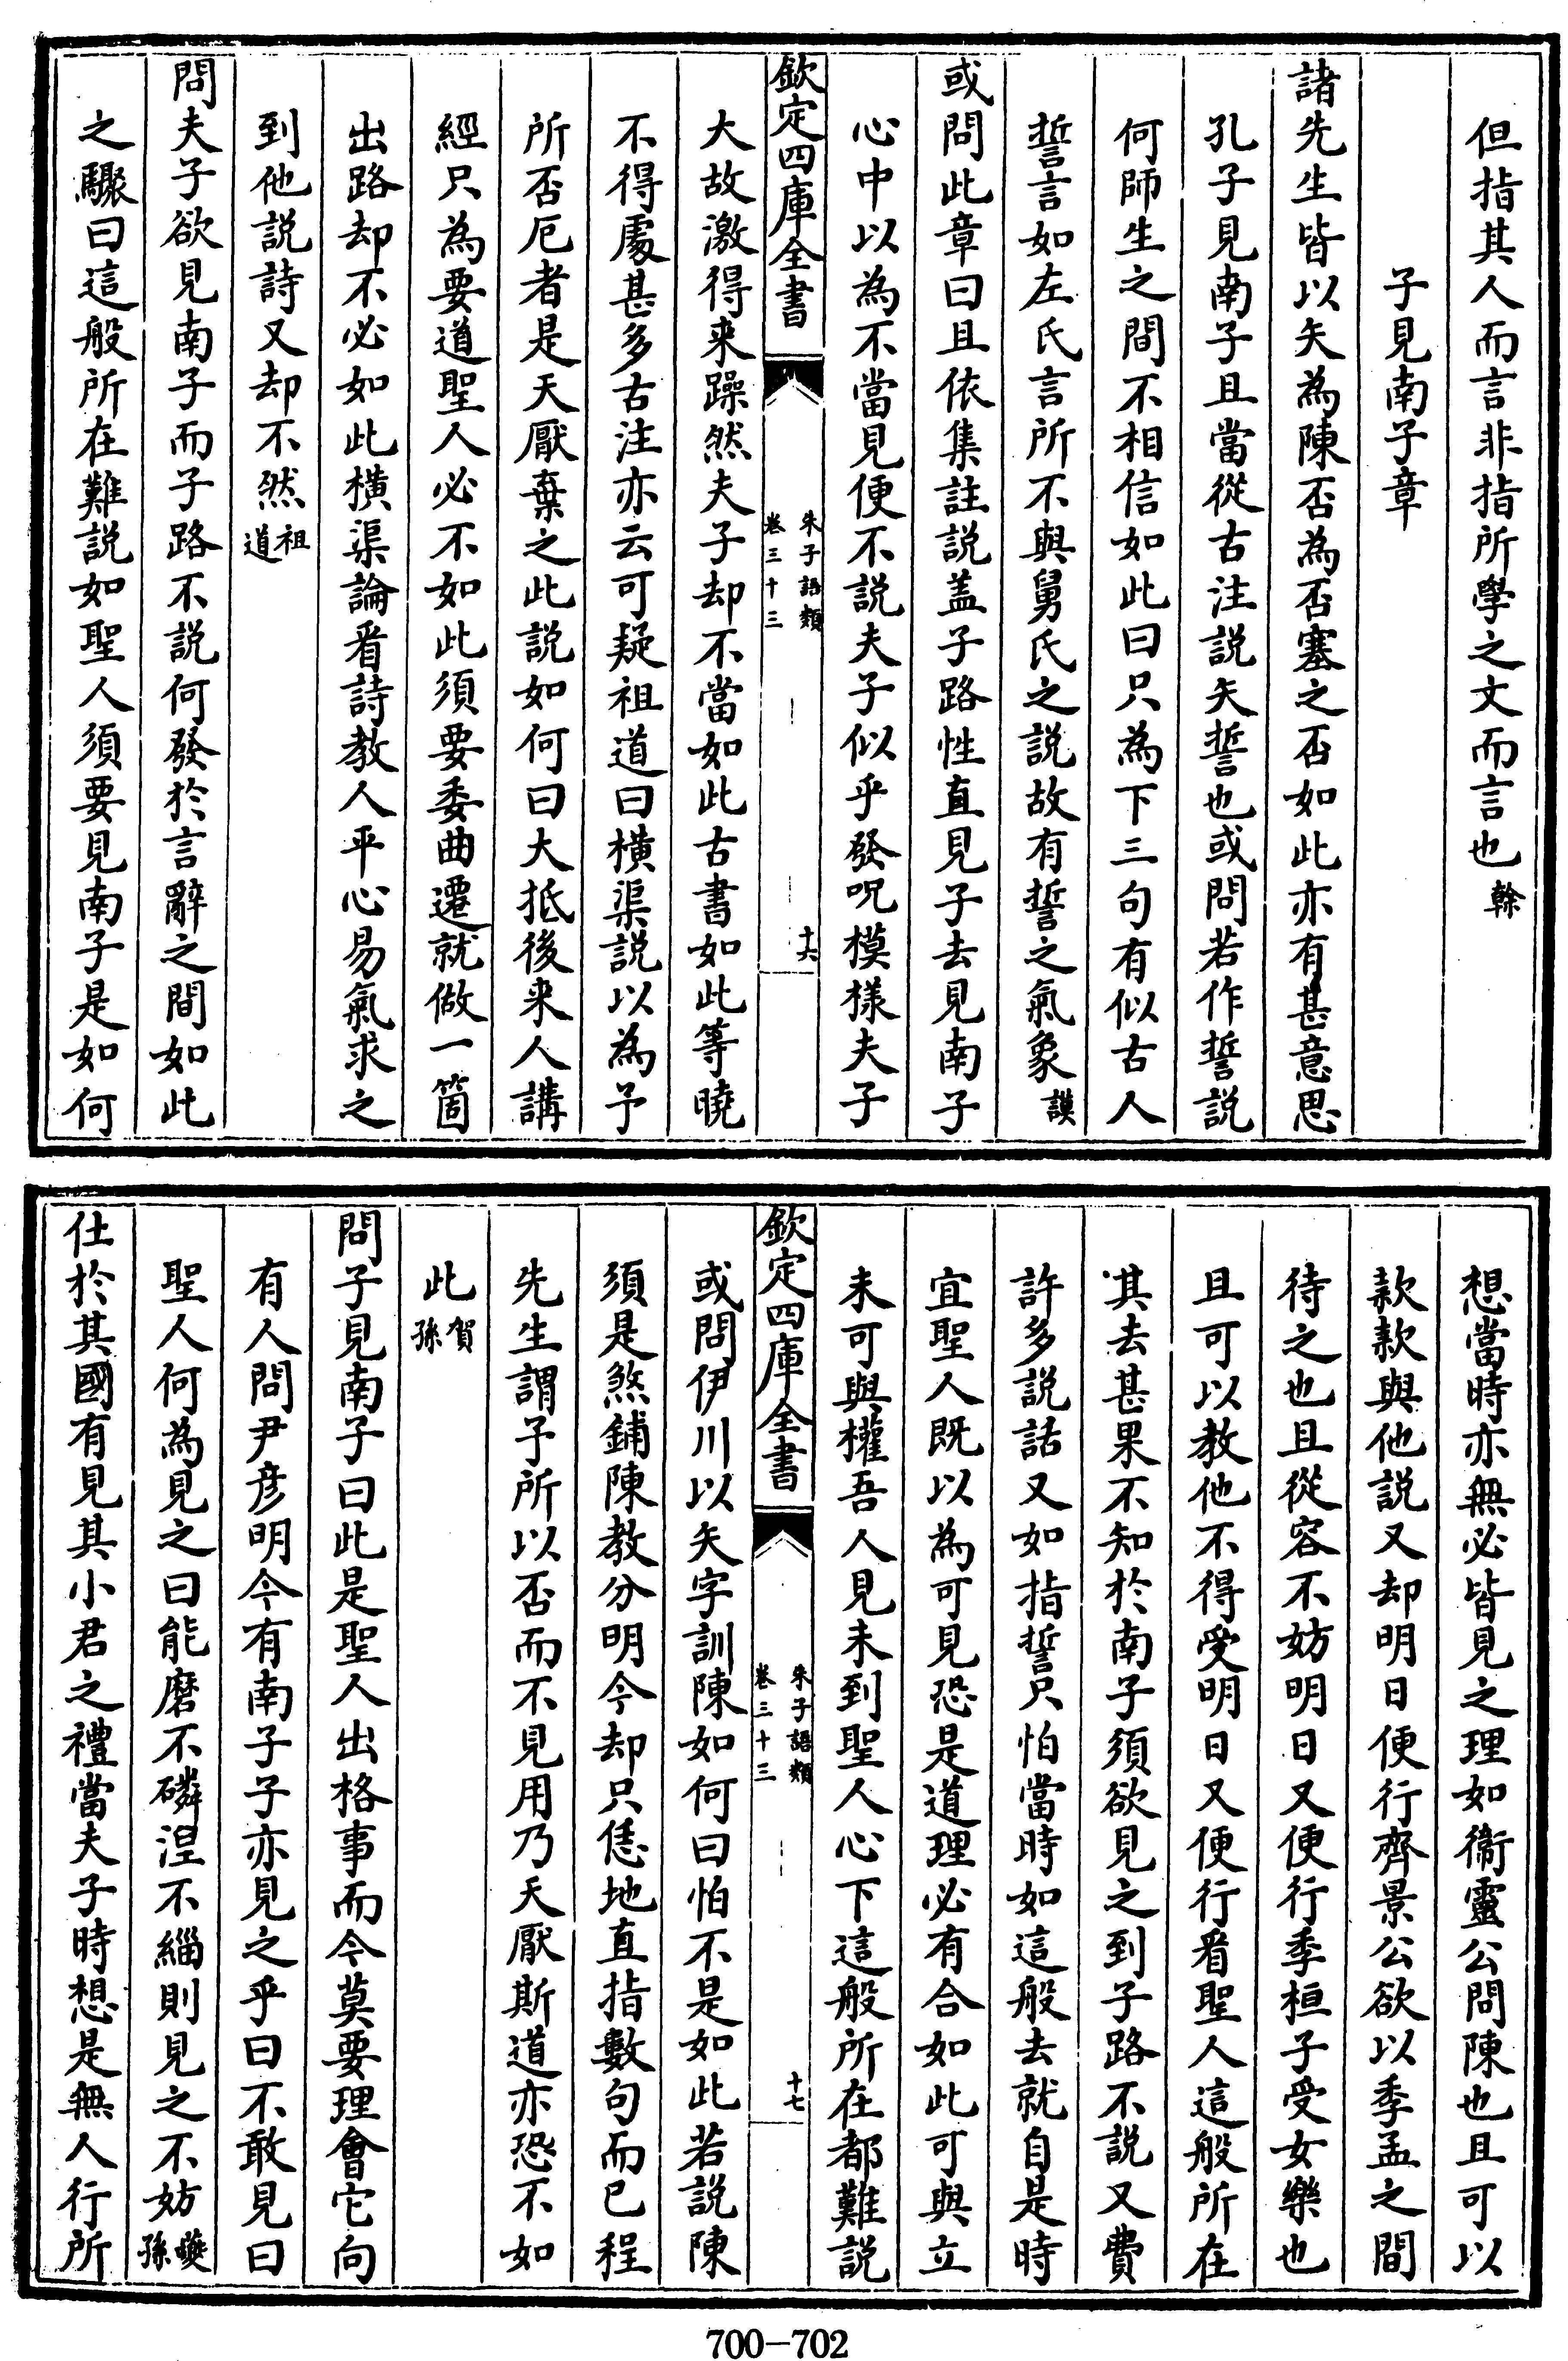 但指其人而言非指所學之文而言也榦
子見南子章
諸先生皆以矢為陳否為否塞之否如此亦有甚意思
孔子見南子且當從古注説矢誓也或問若作誓説
何師生之間不相信如此曰只為下三句有似古人
誓言如左氏言所不與舅氏之説故有誓之氣象謨
或問此章曰且依集註説盖子路性直見子去見南子
心中以為不當見便不説夫子似乎發呪模様夫子
欽定四庫全書
朱子語類
卷三十三
十六
大故激得来躁然夫子却不當如此古書如此等曉
不得處甚多古注亦云可疑祖道曰橫渠説以為予
所否厄者是天厭棄之此説如何曰大抵後来人講
經只為要道聖人必不如此須要委曲遷就做一箇
出路却不必如此橫渠論看詩教人平心易氣求之
到他説詩又却不然祖道
問夫子欲見南子而子路不説何發於言辭之間如此
之驟曰這般所在難説如聖人須要見南子是如何
想當時亦無必皆見之理如衛靈公問陳也且可以
款款與他説又却明日便行齊景公欲以季孟之間
待之也且從容不妨明日又便行季桓子受女樂也
且可以教他不得受明日又便行看聖人這般所在
其去甚果不知於南子須欲見之到子路不説又費
許多説話又如指誓只怕當時如這般去就自是時
宜聖人既以為可見恐是道理必有合如此可與立
未可與權吾人見未到聖人心下這般所在都難説
欽定四庫全書
朱子語類
卷三十三
十七
或問伊川以矢字訓陳如何曰怕不是如此若説陳
須是煞鋪陳教分明今却只恁地直指數句而已程
先生謂予所以否而不見用乃天厭斯道亦恐不如
此賀孫
問子見南子曰此是聖人出格事而今莫要理會它向
有人問尹彥明今有南子子亦見之乎曰不敢見曰
聖人何為見之曰能磨不磷涅不緇則見之不妨夔孫
仕於其國有見其小君之禮當夫子時想是無人行所
700-702